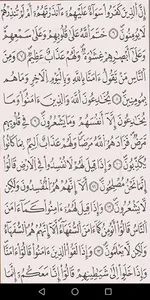 إِنَّ الَّذِينَ كَفَرُوا سَوَآءٌ عَلَيْهِمُۥٓ ءَآنذَرْتَهُمُۥٓ أَمْ لَمْ تُنذِرْهُمْ
لَا يُومِنُونَ ۝ خَتَمَ اللَّهُ عَلَىٰ قُلُوبِهِمْ وَعَلَىٰ سَمْعِهِمْ
وَعَلَىٰٓ أَبْصَٰرِهِمْ غِشَٰوَةٌ وَلَهُمْ عَذَابٌ عَظِيمٌ ۝ وَمِنَ
النَّاسِ مَن يَقُولُ ءَامَنَّا بِاللَّهِ وَبِالْيَوْمِ الَاخِرِ وَمَا هُم
بِمُومِنِينَ ۝ يُخَٰدِعُونَ اللَّهَ وَالَّذِينَ ءَامَنُوا وَمَا
يُخَٰدِعُونَ إِلَّآ أَنفُسَهُمْ وَمَا يَشْعُرُونَ ۝ فِي قُلُوبِهِم
مَّرَضٌ فَزَادَهُمُ اللَّهُ مَرَضًا وَلَهُمْ عَذَابٌ اَلِيمٌۢ بِمَا كَانُوا
يُكَذِّبُونَ ۝ وَإِذَا قِيلَ لَهُمْ لَا تُفْسِدُوا فِي الَارْضِ قَالُوٓا
إِنَّمَا نَحْنُ مُصْلِحُونَ ۝ أَلَآ إِنَّهُمْ هُمُ الْمُفْسِدُونَ وَلَٰكِن
لَّا يَشْعُرُونَ ۝ وَإِذَا قِيلَ لَهُمُۥٓ ءَامِنُوا كَمَآ ءَامَنَ
النَّاسُ قَالُوٓا أَنُومِنُ كَمَآ ءَامَنَ السُّفَهَآءُ اَلَآ إِنَّهُمْ هُمُ السُّفَهَآءُ
وَلَٰكِن لَّا يَعْلَمُونَ ۝ وَإِذَا لَقُوا الَّذِينَ ءَامَنُوا قَالُوٓا ءَامَنَّا
وَإِذَا خَلَوِا اِلَىٰ شَيَٰطِينِهِمْ قَالُوٓا إِنَّا مَعَكُمُۥٓ إِنَّمَا